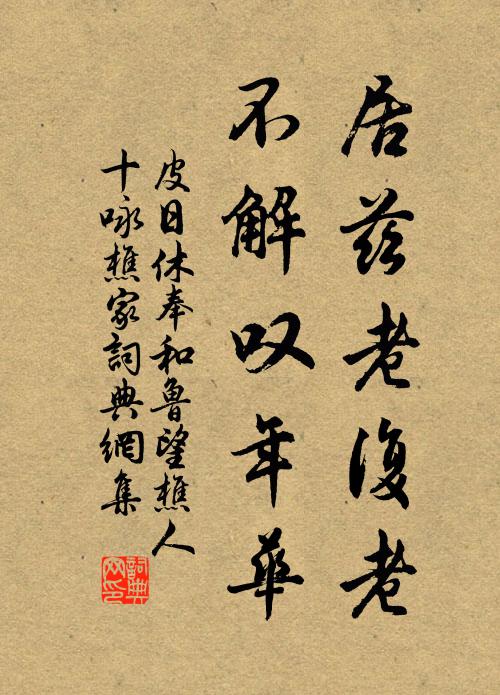 居兹老復老
不解叹年華
皮日休奉和魯望樵人
十咏樵家詞典網集
詞典
网印